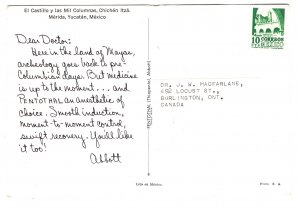 El Castillo y las Mil Columnas, Chichén Itzá.
Mérida, Yucatán, México
Dear Doctor:
Here in the land of Mayas,
archeology goes back to pre-
Columbian days. But medicine
is up to the moment... and
PENTOTHAL an anesthetic of
choice. Smooth induction,
moment-to-moment control,
swift recovery. You'll like
it too!
Abbott
PENTOTHAL (Thiopental, Abbott)
DR. J. W. MACFARLANE,
452 LOCUST ST.,
BURLINGTON, ONT.
CANADA
10
CORREOS
MEXICO